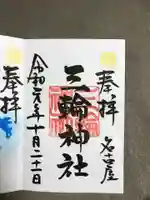 奉拝
名古屋
三輪神社
令和元年十月二十二日
奉拝